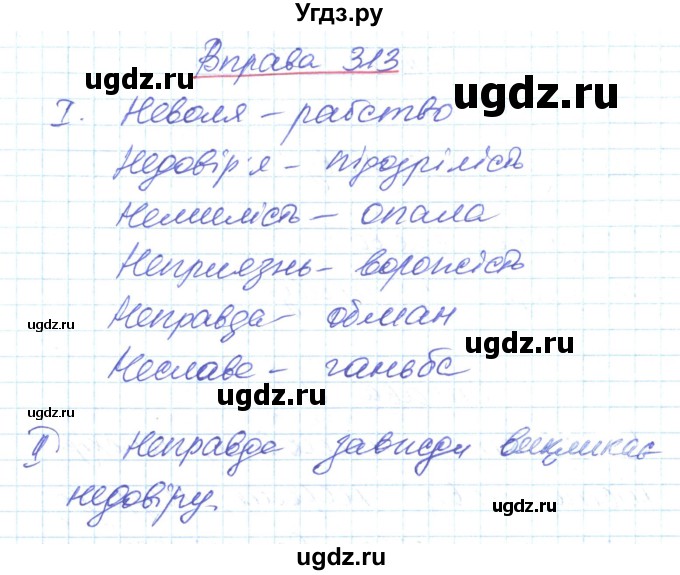 Угдз.ру
Вправа 313
ugdz.ru
ugdz.ru
I. Неволя – рабство
Недовір'я – підозрілість
Немилість – опала
Неприязнь – ворожість
ugdz.ru
ugdz.ru
Неправда – обман
ugdz.ru
Неслава – ганьба
ugdz.ru
ugdz.ru
II Неправда завжди викликає
недовіру.
ugdz.ru
ugdz.ru
ugdz.ru
ugdz.ru